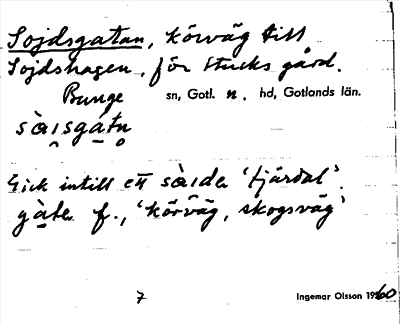 Sojdsgatan, körväg till
Sojdshagen, för Stucks gård.
Bunge sn, Gotl. n. hd, Gotlands län.
sàı̯sgátn̥
Gick intill ett sàı̯de 'tjärdal'.
gàte f., 'körväg, skogsväg'
7
Ingemar Olsson 1960